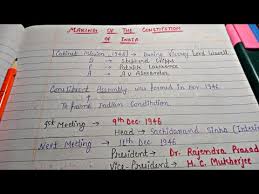 MAKING OF THE CONSTITUTION
OF INDIA
Cabinet Mission, 1946 → During Viceroy Lord Wavell
S → Stepherd Cripps
P → Pethick Lawrence
A → A V Alexander
Constituent Assembly was formed in Dec 1946
To frame Indian Constitution
1st Meeting → 9th Dec 1946
Head → Sachidanand Sinha (Interim
Next Meeting → 11th Dec 1946
President → Dr. Rajendra Prasad
Vice-President → H.C. Mukherjee